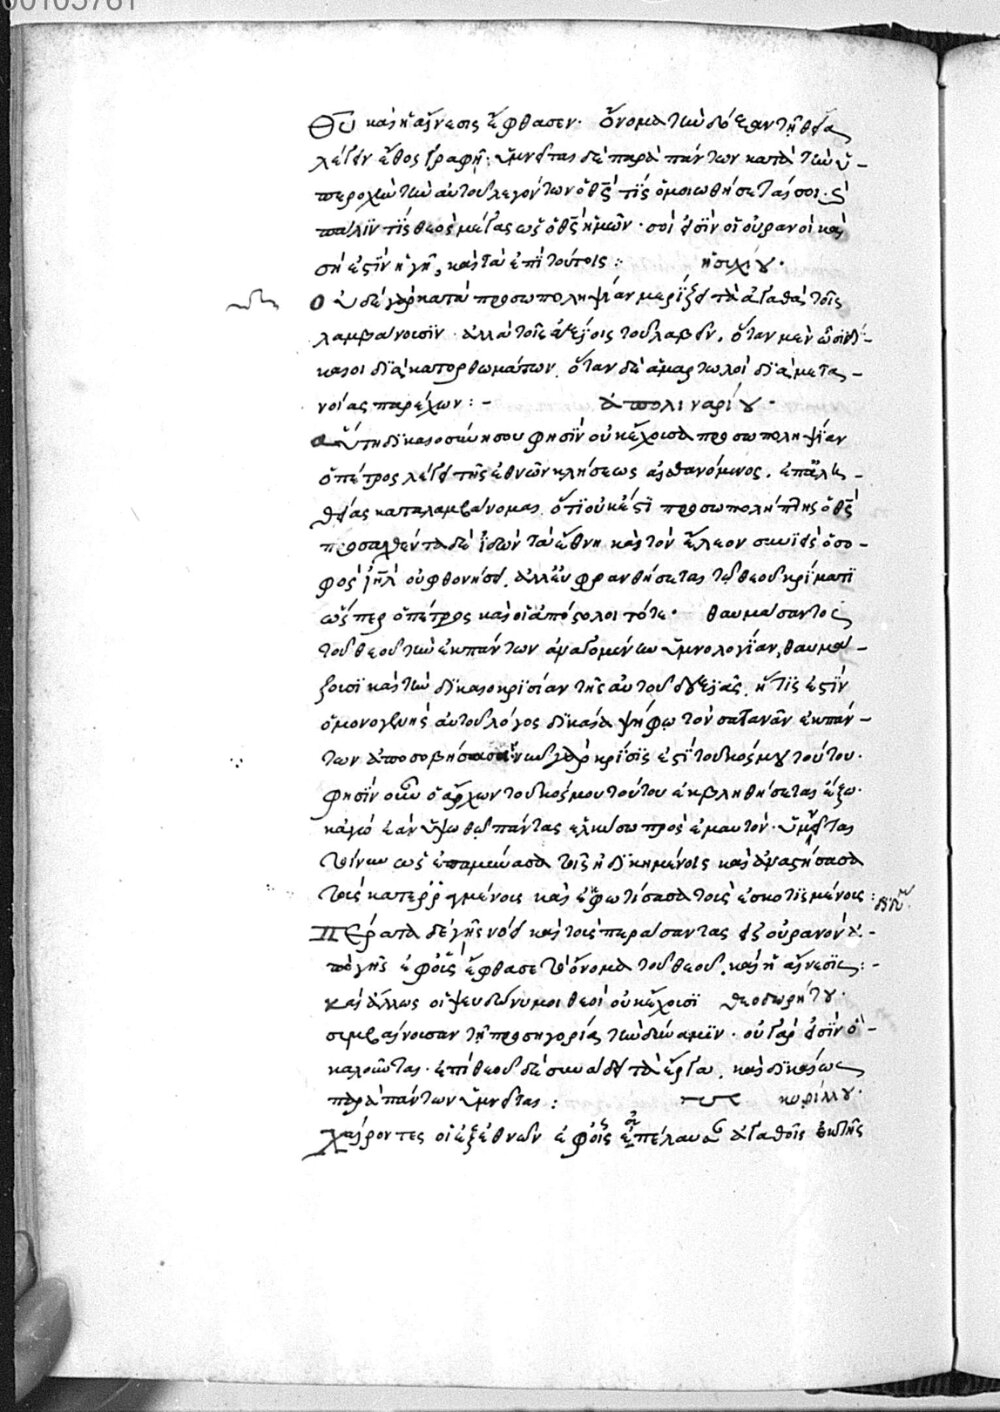 00105761
θυ καὶ ἡ αἴνεσις ἔφθασεν· ὄνομα τὴν δόξαν τῇ θείᾳ
λέγειν ἔθος γραφῇ: ὑμνεῖται δὲ παρὰ πάντων κατὰ τὴν ὑ-
περοχὴν τὴν αὐτοῦ λεγόντων ὁ θς τίς ὁμοιωθήσεταί σοι· ϛ
πάλιν τίς θεὸς μέγας ὡς ὁ θς ἡμῶν· σοί εἰσιν οἱ οὐρανοὶ καὶ
σή ἐστιν ἡ γῆ, καὶ τὰ ἐπὶ τούτοις: ἡσυχίου·
Οὐδὲ γὰρ κατὰ προσωποληψίαν μερίζει τὰ ἀγαθὰ τοῖς
λαμβάνουσιν· ἀλλὰ τοῖς ἀξίοις τοῦ λαβεῖν, ὅταν μὲν ὦσιν δί-
καιοι διὰ κατορθωμάτων, ὅταν δὲ ἁμαρτωλοὶ διὰ μετα-
νοίας παρέχων: - ἀπολιναρίου·
Αὕτη δικαιοσύνη σου φησὶν οὐκ ἔχουσα προσωποληψίαν
ὁ πέτρος λέγει τῆς ἐθνῶν κλήσεως αἰσθανόμενος, ἐπ' ἀλη-
θείας καταλαμβάνομαι, ὅτι οὐκ ἔστι προσωπολήπτης ὁ θς
προσελθόντα δὲ ἰδὼν τὰ ἔθνη καὶ τὸν ἔλεον συνιεὶς ὁ σο-
φὸς ιηλ οὐ φθονήσει, ἀλλ' εὐφρανθήσεται τῷ θεοῦ κρίματι
ὥσπερ ὁ πέτρος καὶ οἱ ἀπόστολοι τότε· θαυμάσαντες
τοῦ θεοῦ τὴν ἐκ πάντων ἀναδομένην ὑμνολογίαν, θαυμά-
ζουσι καὶ τὴν δικαιοκρισίαν τῆς αὐτοῦ δεξιᾶς, ἥτις ἐστὶν
ὁ μονογενὴς αὐτοῦ λόγος δικαίᾳ ψήφῳ τὸν σατανᾶν ἐκ πάν-
των ἀποσοβήσασα νῦν γὰρ κρίσις ἐστὶ τοῦ κόσμου τούτου·
φησὶν οὖν ὁ ἄρχων τοῦ κόσμου τούτου ἐκβληθήσεται ἔξω·
κἀγὼ ἐὰν ὑψωθῶ πάντας ἑλκύσω πρὸς ἐμαυτόν· ὑμνεῖται
τοίνυν ὡς ἐπαμύνασα τοῖς ἠδικημένοις καὶ ἀναστήσασα
τοὺς κατερραγμένους καὶ φωτίσασα τοὺς ἐσκοτισμένους: διδυμ
Πέρατα δὲ γῆς νόει καὶ τοὺς περαιώσαντας εἰς οὐρανὸν ἀ-
πὸ γῆς ἐφ' οὓς ἔφθασε τὸ ὄνομα τοῦ θεοῦ, καὶ ἡ αἴνεσις: -
καὶ ἄλλως οἱ ψευδώνυμοι θεοὶ οὐκ ἔχουσι θεοδωρήτου·
συμβαίνουσαν τῇ προσηγορίᾳ τὴν δύναμιν· οὐ γάρ εἰσιν ὃ-
καλοῦνται· ἐπὶ θεοῦ δὲ συνᾴδει τὰ ἔργα, καὶ δικαίως
παρὰ πάντων ὑμνεῖται: κυρίλλου·
χαίροντες οἱ ἐξ ἐθνῶν ἐφ' οἷς ἀπέλαυον ἀγαθοῖς ἐκ τῆς